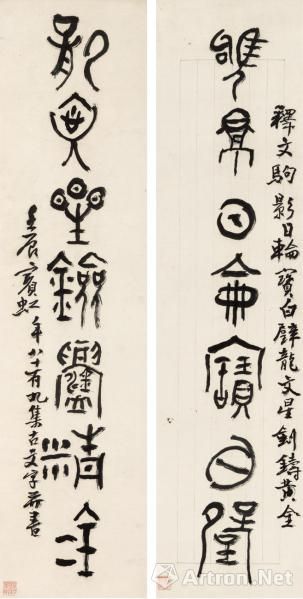 釋文駒影日輪寶白璧龍文星劍鑄黃金
駒影日輪寶白璧
龍文星劍鑄黃金
壬辰賓虹年八十有九集古文字並書
Artron.Net